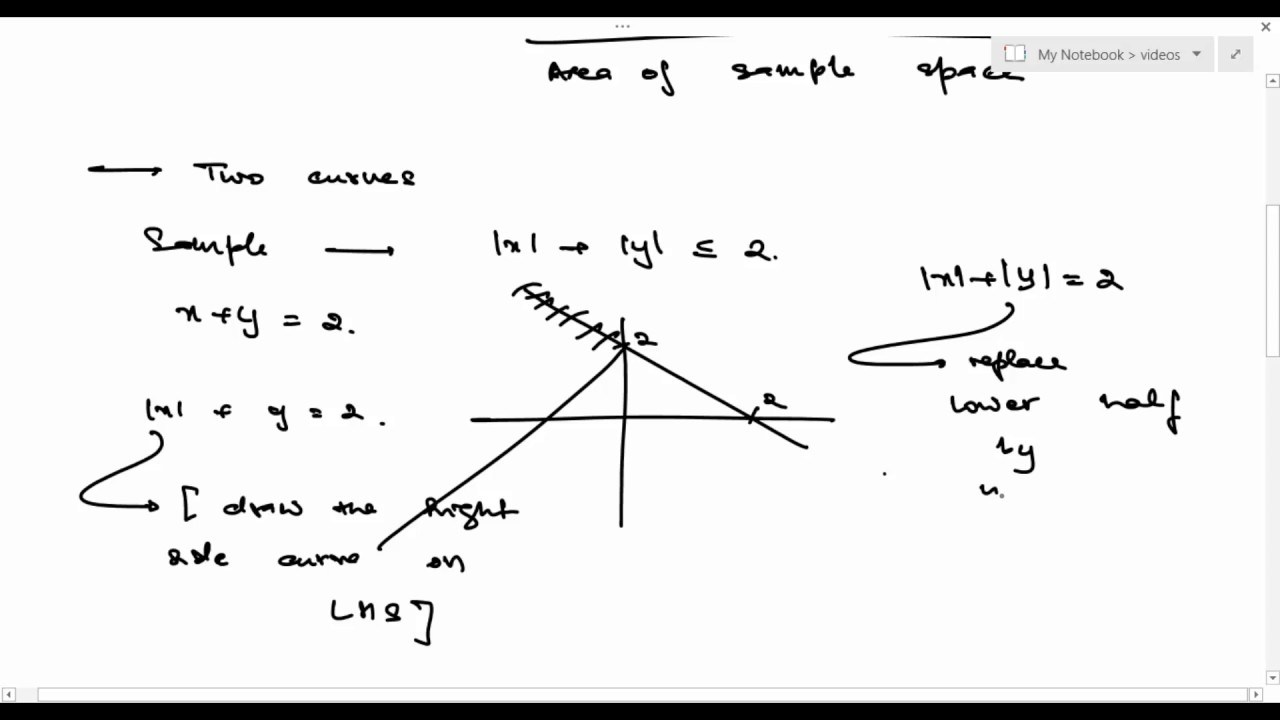 ...
My Notebook > videos
Area of sample space
Two curves
Sample
|x| + |y| ≤ 2.
x + y = 2.
|x| + y = 2.
[ draw the Right
side curve on
LHS ]
2
2
|x| + |y| = 2
replace
lower half
by